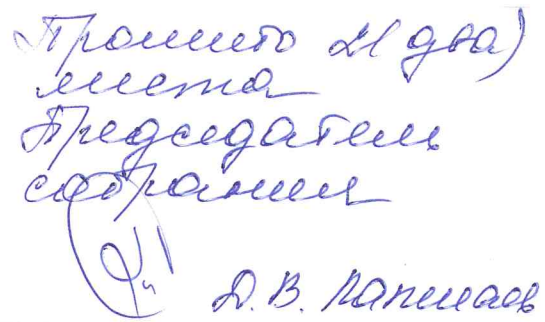 Прошито 2( два)
листа
Председатель
собрания
Д. В.